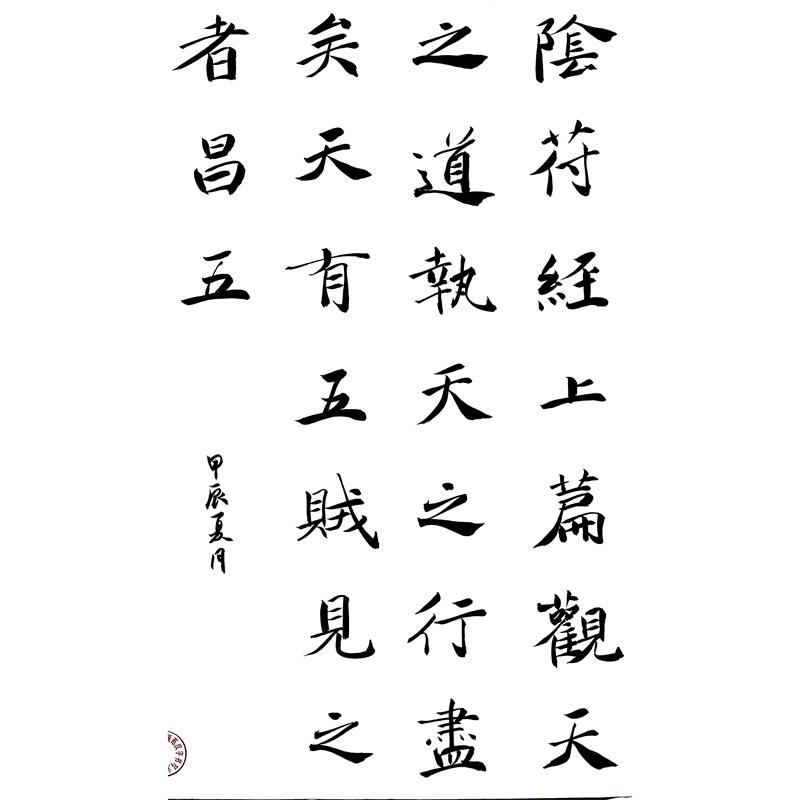 陰符經上篇觀天
之道執天之行盡
矣天有五賊見之
者昌五
甲辰夏月